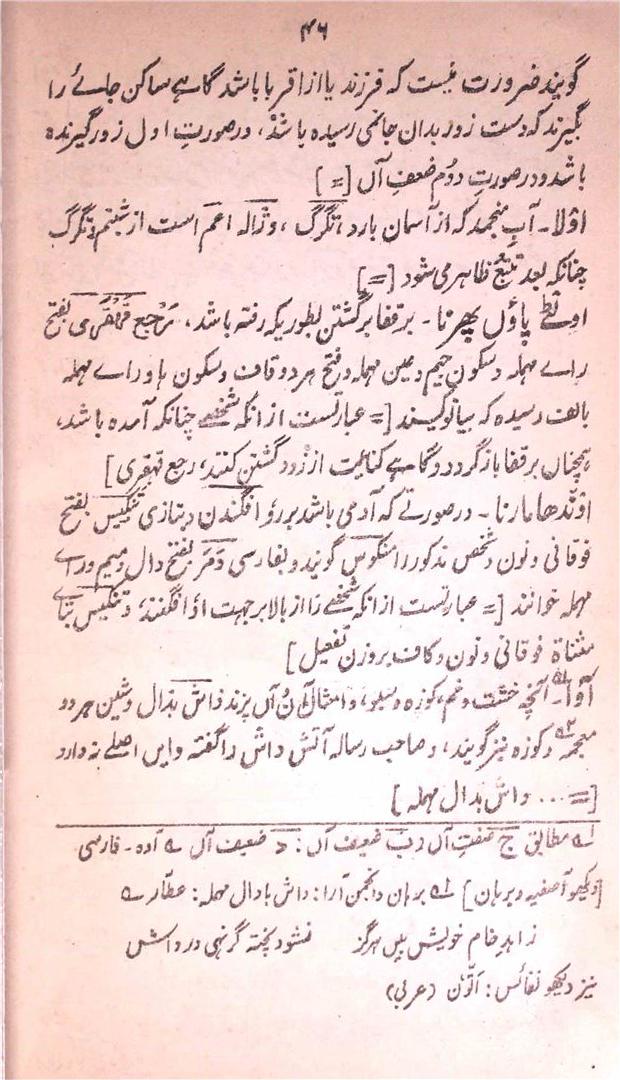 ۴۶
گویند ضرورت نیست که فرزند یا از اقربا باشد گاہے ساکن جائے را
بگیرند که دست زور بدان جا نمی رسیده باشد، و در صورتِ اول زور گیرنده
باشد و در صورتِ دوُم ضعفِ آں [=]
اولا۔ آبِ منجمد که از آسمان بارد، تگرگ، و ژاله اعم است از شبنم و تگرگ
چنانکه بعد تتبّع ظاهر می شود [=]
اولٹے پاؤں پھرنا۔ بر قفا برگشتن بطوریکه رفته باشد، مَرجع قہقری بفتح
راے مہمله و سکونِ جیم و عین مہمله و فتح ہر دو قاف و سکون ہا و راے مہمله
بالف رسیده که بیا نویسند [= عبارتست از انکه شخصے چنانکه آمده باشد،
ہمچناں بر قفا باز گردد و گاہے کنایت از زود گشتن کنند، رجع قہقری]
اوندھا مارنا۔ در صورتے که آدمی باشد بر رُو افگندن و بتازی تنکیس بفتح
فوقانی و نون و شخص مذکور را منکوس گویند و بفارسی دَمَر بفتح دال و میم و راے
مہمله خوانند [= عبارتست از انکه شخصے را از بالا بر جہت افگنند، و تنکیس بتاے
مثناة فوقانی و نون و کاف بروزن تفعیل]
آوا۔ آنچه خشت و خم، کوزه و سبو، و امثال آں پزند داش بذال و شین ہر دو
معجمه و کوزه نیز گویند، و صاحب رساله آتش داش را گفته و ایں اصلے نه دارد
[=... داش بدال مہمله]
له مطابق ج صفتِ آں و ب ضعیف آں: د ضعیف آں ے آوه۔ فارسی
[دیکھو آصفیه و برہان] له برہان و انجمن آرا: داش با دال مہمله: عطّار ے
زاہدِ خام خویش بیں ہرگز نشود پخته گر نہی در داش
نیز دیکھو نفائس: اَتّون (عربی)